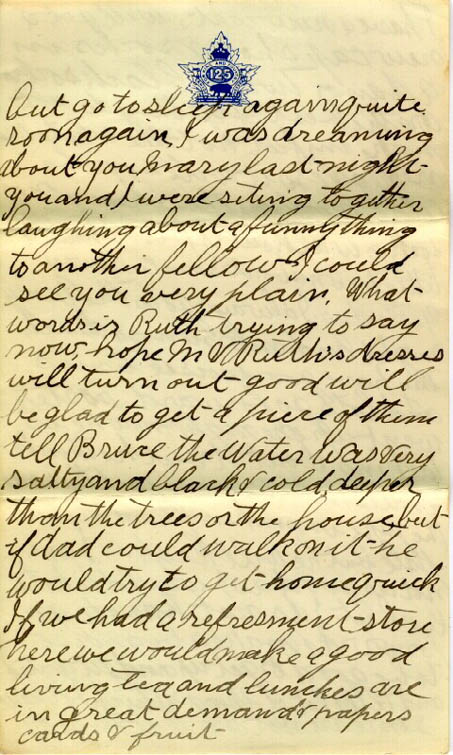 125
but go to sleep again quite
soon again, I was dreaming
about you Mary last night
you and I were siting together
laughing about a funny thing
to another fellow I could
see you very plain, What
words is Ruth trying to say
now, hope M & Ruth's dresses
will turn out good will
be glad to get a piece of them
tell Bruce the Water was very
salty and black & cold, deeper
than the trees or the house, but
if dad could walk on it he
would try to get home quick
If we had a refresment store
here we would make a good
living tea and lunches are
in great demand & papers
cards & fruit